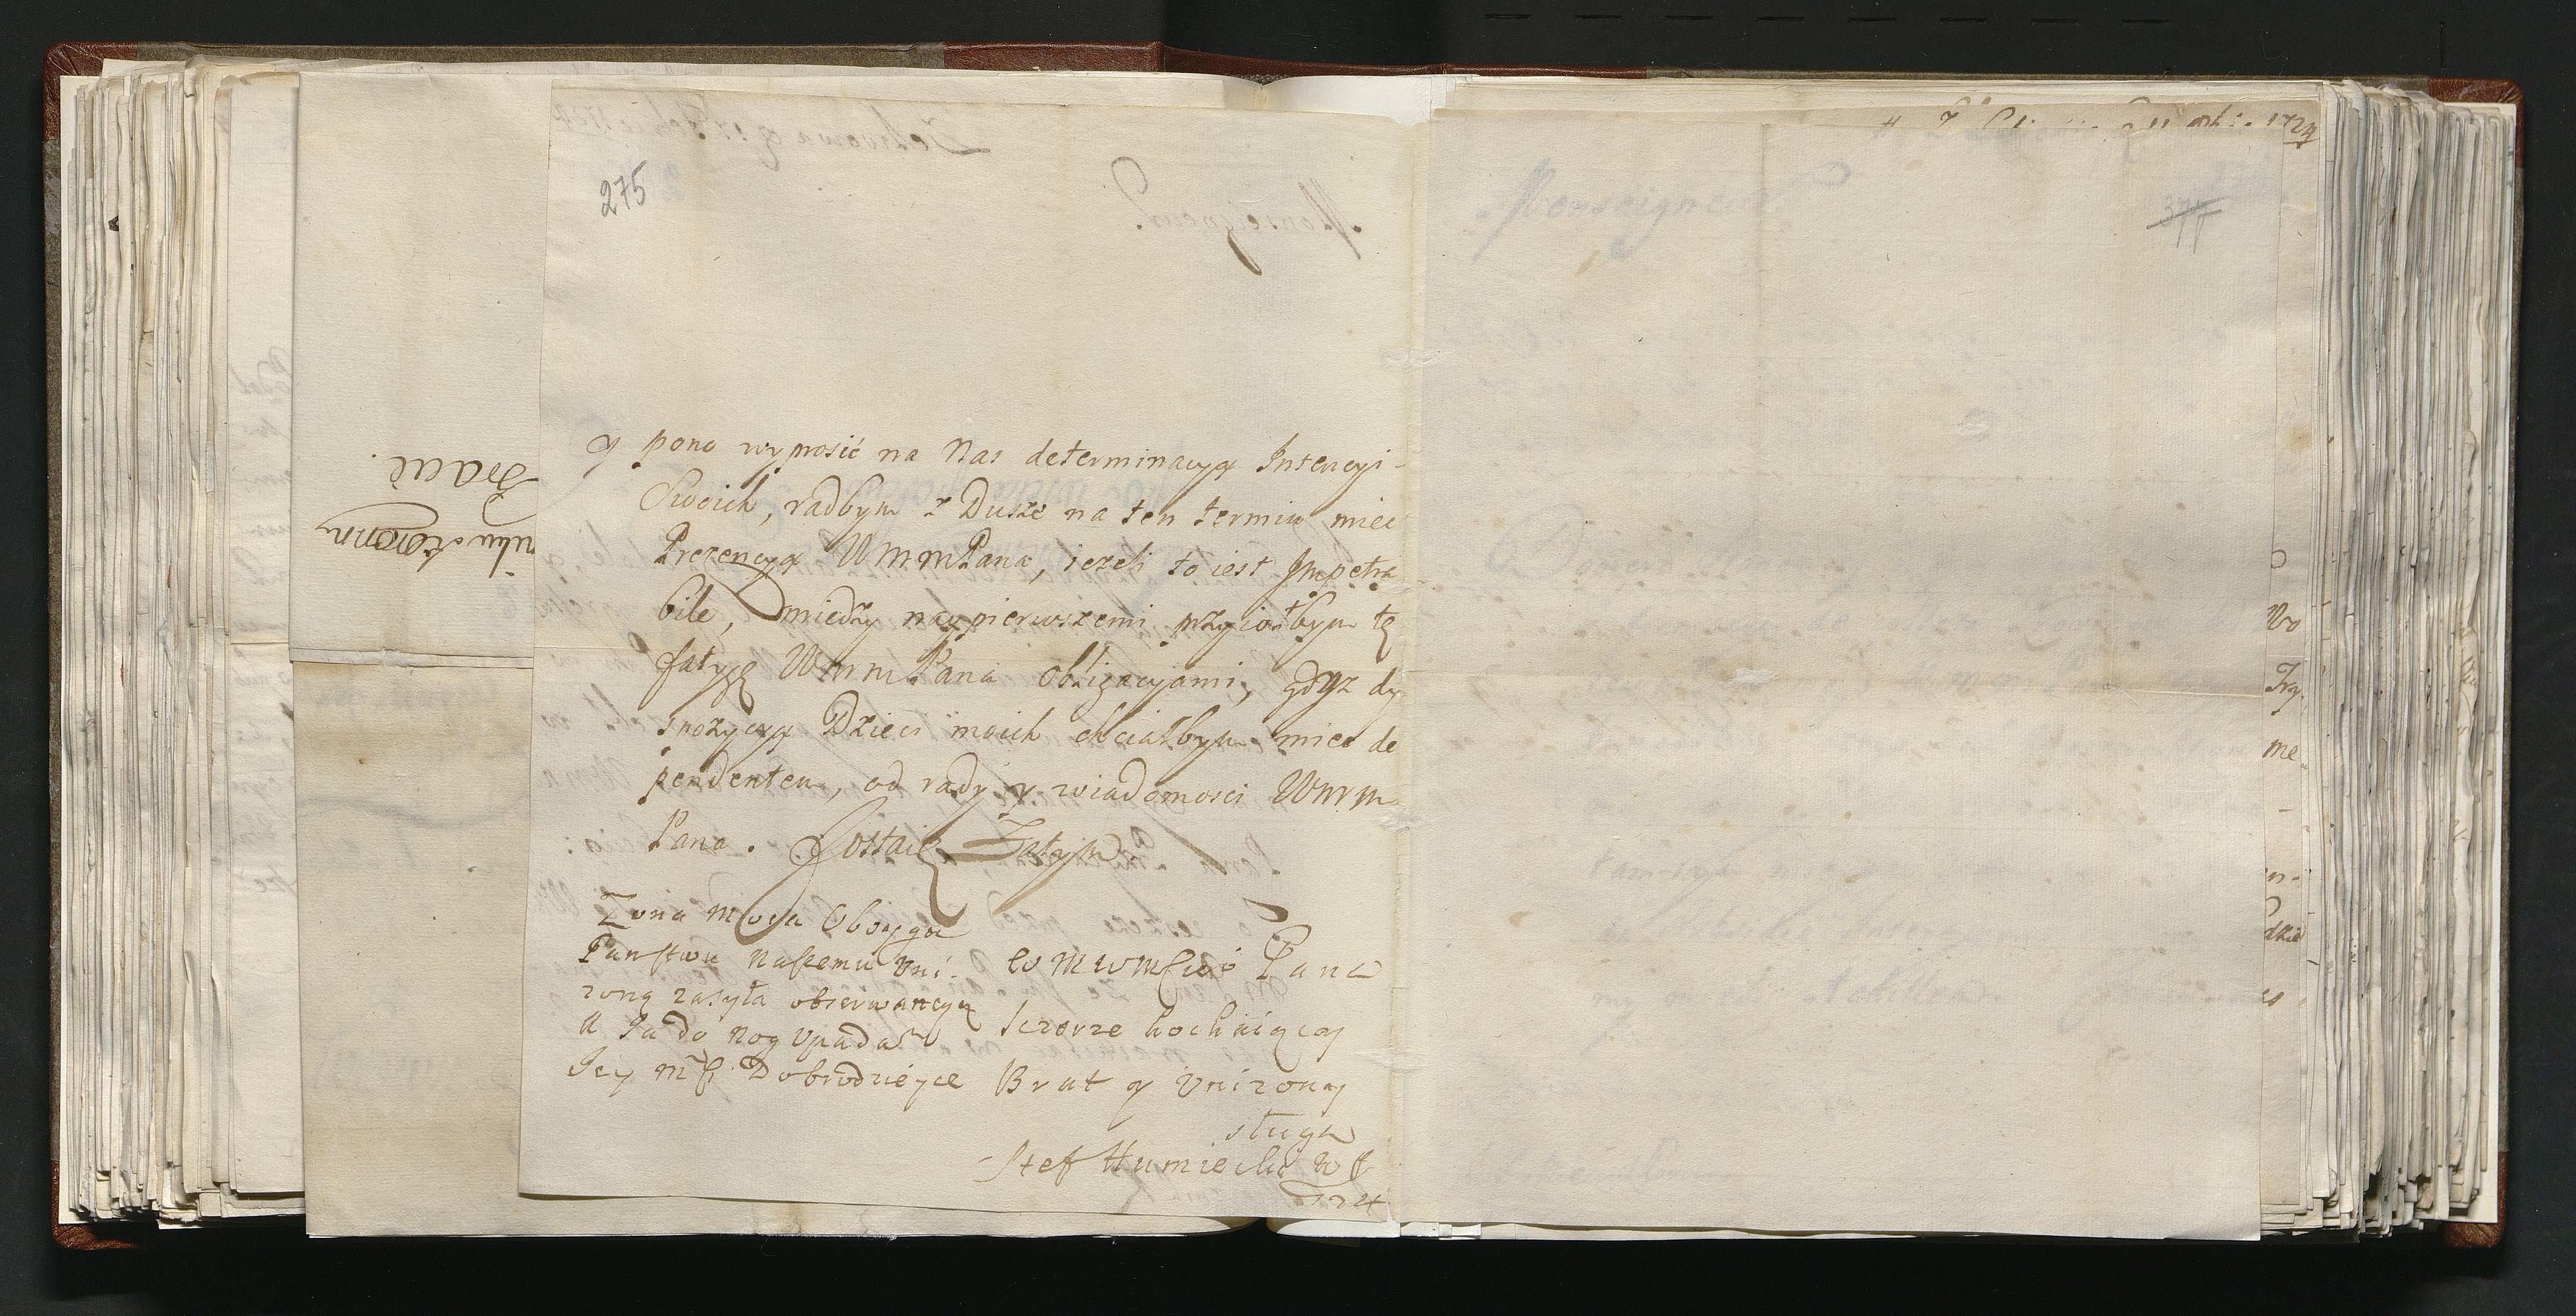 275
y pono wynosić na Nas determinacyą Intencyi
Swoich, radbym z Dusze na ten termin miec
Prezencyą WmmPana, iezeli to iest Impetra
bile, miedzy naypierwszemi przyiołbym tę
fatygę WmmPana obligacyami, gdyz dy
spozycyą Dzieci moich chciałbym miec de
pendentem, od rady y wiadomosci Wmm
Pana. Zostaię Zatym
Zona moia Oboyga
Panstwu naszemu uni-
zoną zasyła obserwancyą
A Ja do nog upadam
Jey Dobrodzieyce
Pana
sczerze kochaiący
Brat y Unizony
sługa
Stef Humiecki
377